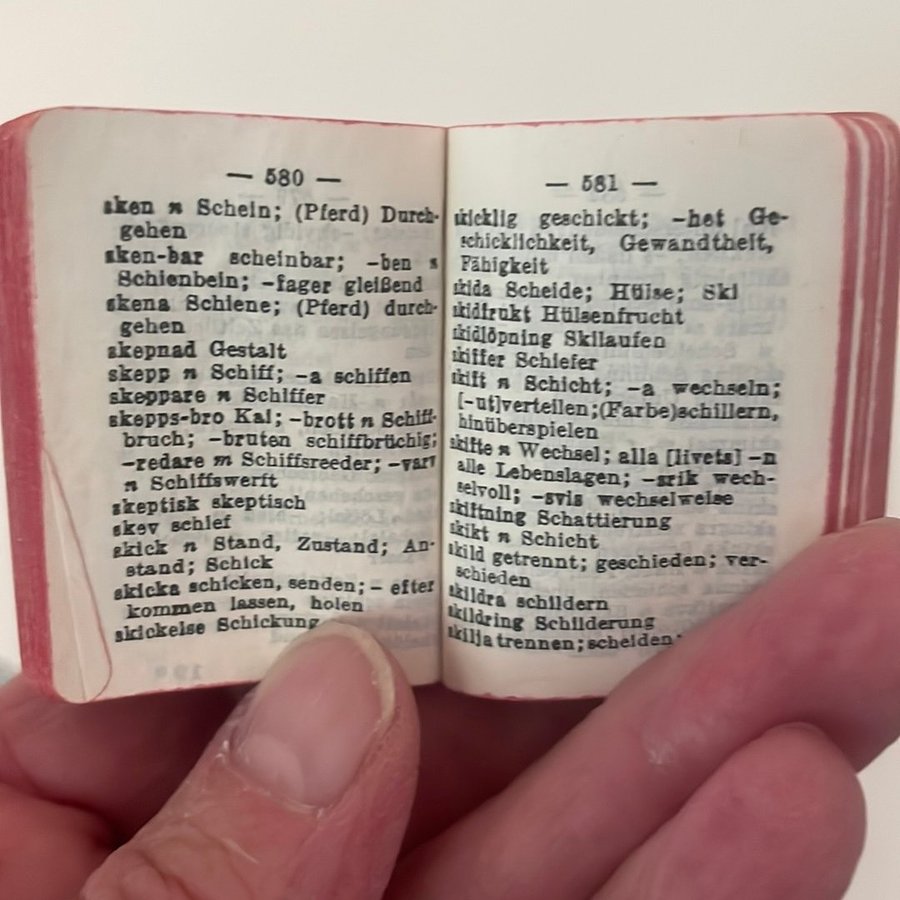 — 580 —
sken n Schein; (Pferd) Durch-
gehen
sken-bar scheinbar; -ben s
Schienbein; -fager gleißend
skena Schiene; (Pferd) durch-
gehen
skepnad Gestalt
skepp n Schiff; -a schiffen
skeppare n Schiffer
skepps-bro Kai; -brott n Schiff-
bruch; -bruten schiffbrüchig;
-redare m Schiffsreeder; -varv
n Schiffswerft
skeptisk skeptisch
skev schief
skick n Stand, Zustand; An-
stand; Schick
skicka schicken, senden; - efter
kommen lassen, holen
skickelse Schickung
— 581 —
skicklig geschickt; -het Ge-
schicklichkeit, Gewandtheit,
Fähigkeit
skida Scheide; Hülse; Ski
skidfrukt Hülsenfrucht
skidlöpning Skilaufen
skiffer Schiefer
skift n Schicht; -a wechseln;
[-ut]verteilen;(Farbe)schillern,
hinüberspielen
skifte n Wechsel; alla [livets] -n
alle Lebenslagen; -srik wech-
selvoll; -svis wechselweise
skiftning Schattierung
skikt n Schicht
skild getrennt; geschieden; ver-
schieden
skildra schildern
skildring Schilderung
skilja trennen; scheiden;